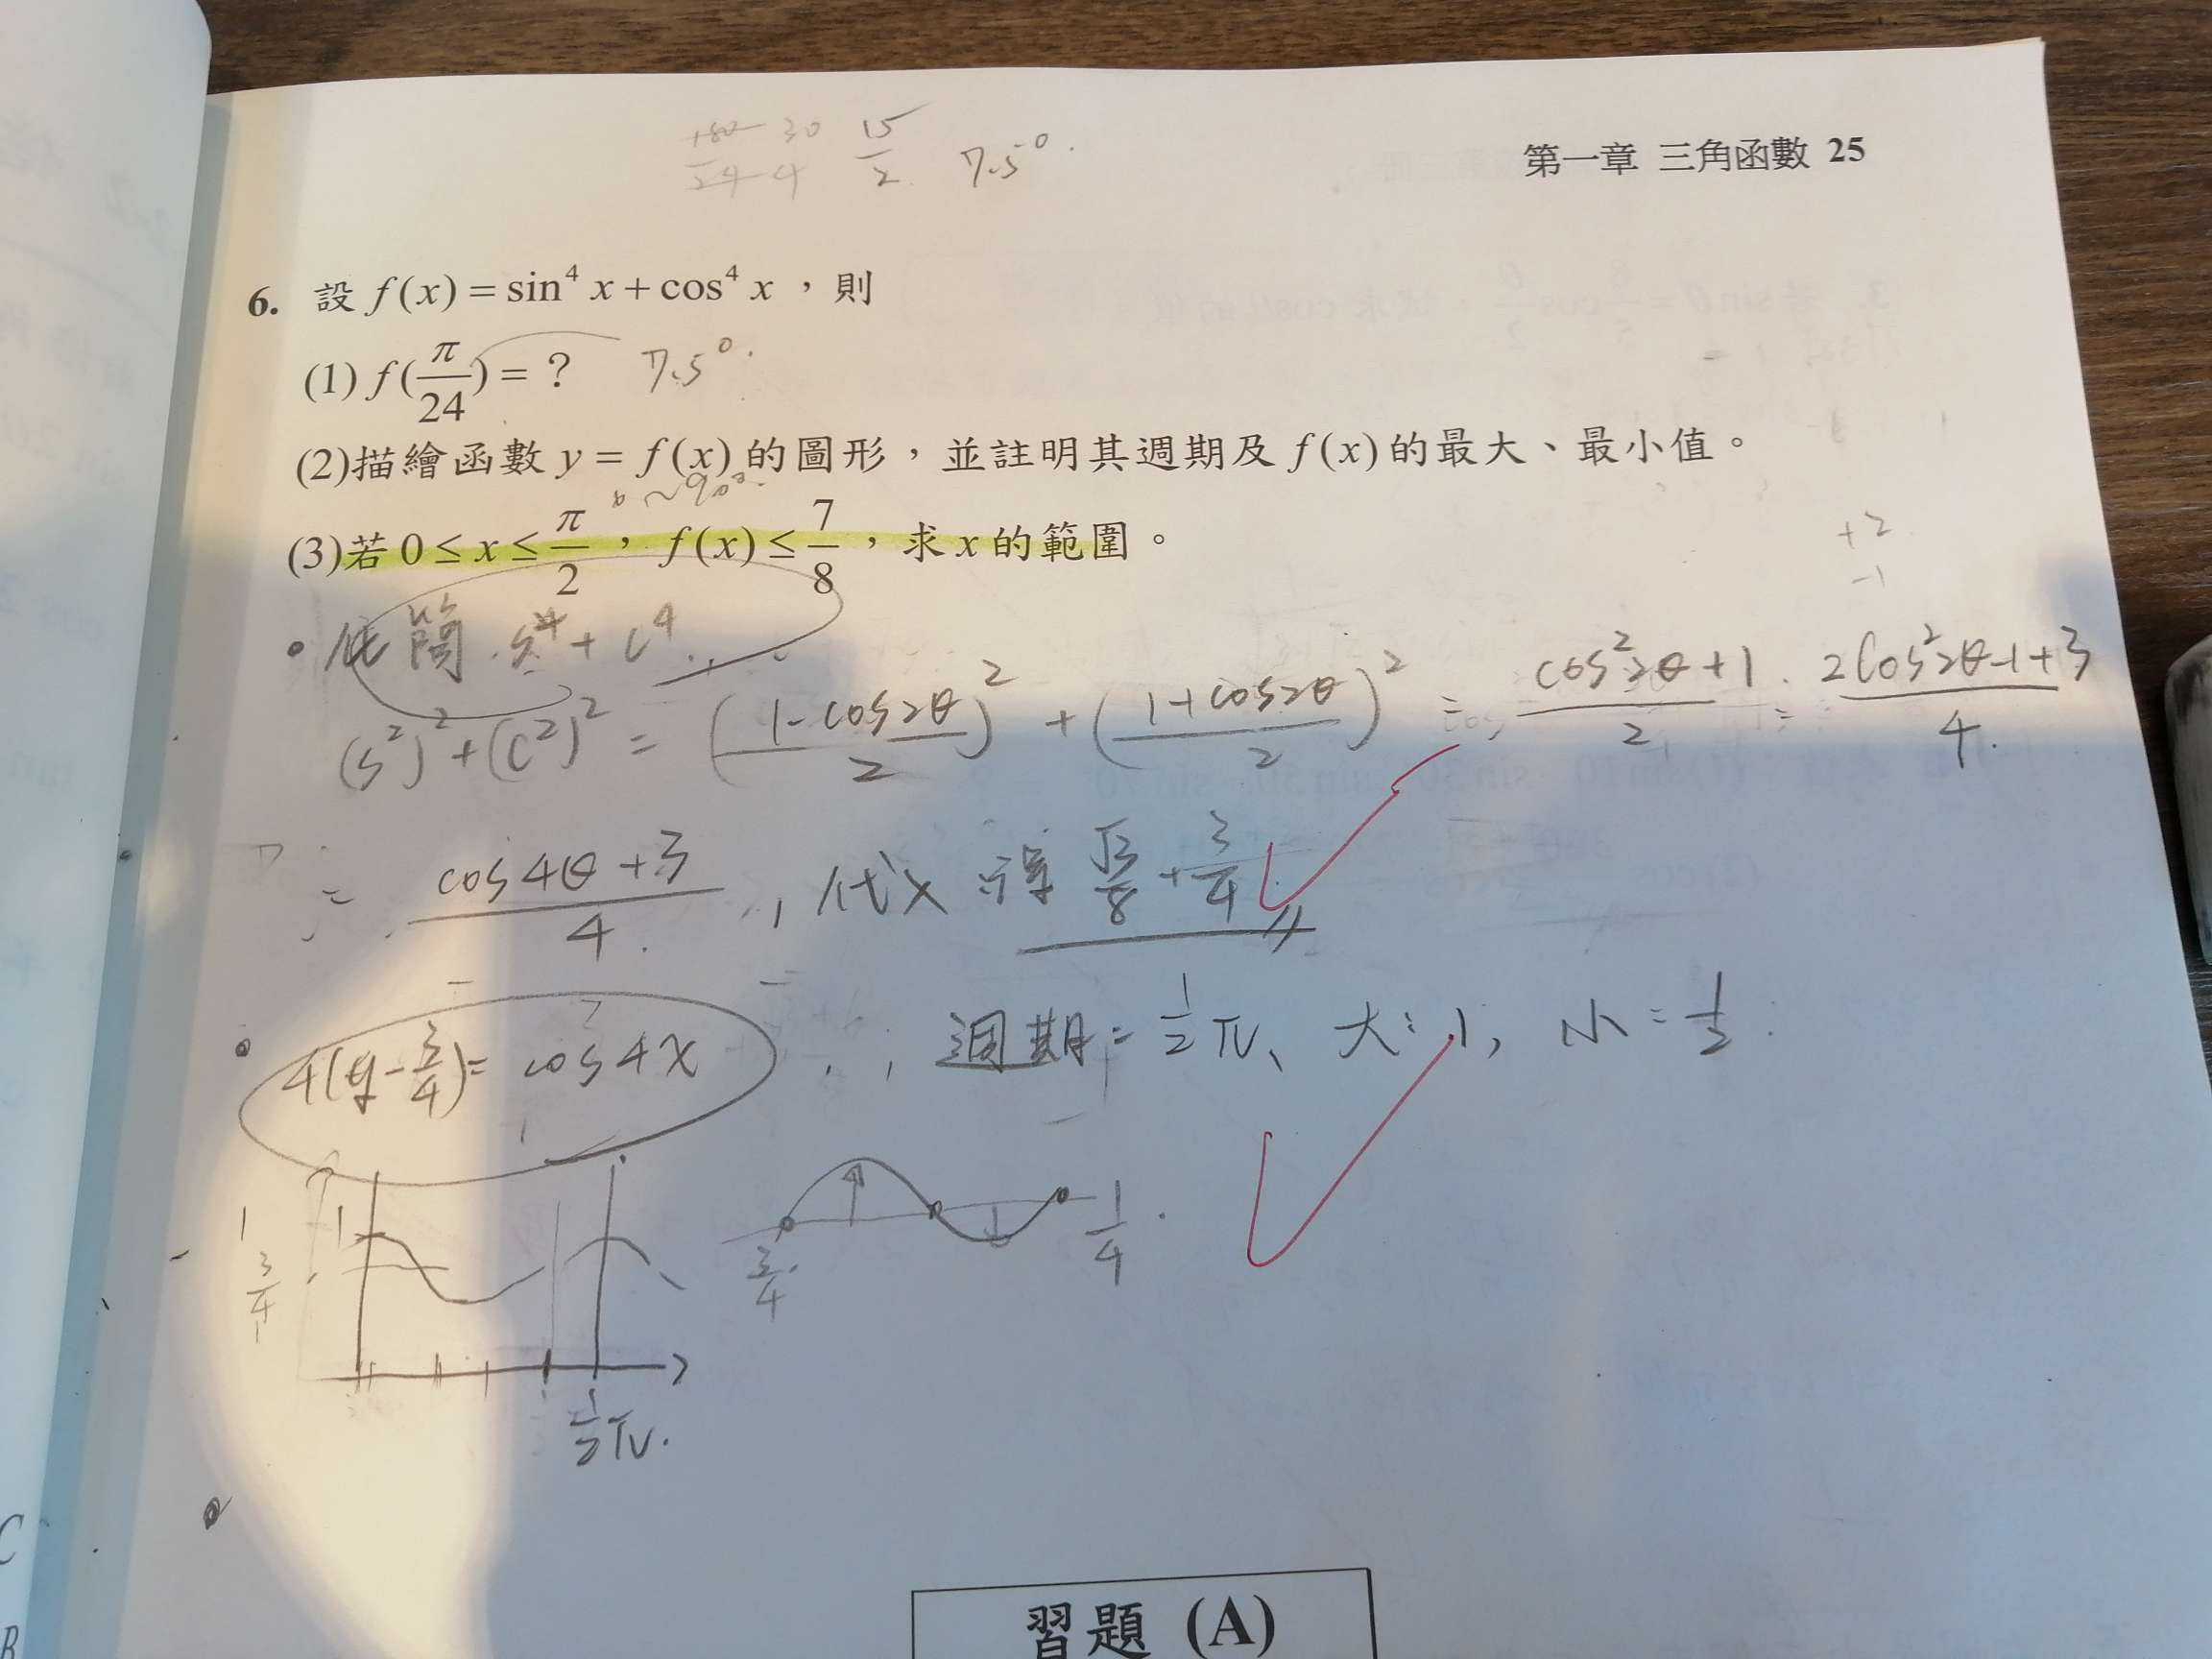 180 30 15
24 4 2 7.5°
第一章 三角函數 25
6. 設 f(x) = sin⁴ x + cos⁴ x ，則
(1) f(π/24) = ？ 7.5°
(2)描繪函數 y = f(x) 的圖形，並註明其週期及 f(x) 的最大、最小值。
0~90°
(3)若 0 ≤ x ≤ π/2 ， f(x) ≤ 7/8 ，求 x 的範圍。
+2
-1
化簡 s⁴ + c⁴
(s²)² + (c²)² = ((1-cos2θ)/2)² + ((1+cos2θ)/2)² = (cos²2θ+1)/2 = (2cos²2θ-1+3)/4
= (cos4θ+3)/4 , 代入得 √3/8 + 3/4
4(y-3/4) = cos4x , 週期 = 1/2 π、大: 1, 小: 1/2
1 1
3/4 3/4 1/4
1/2 π
習題 (A)
C
B